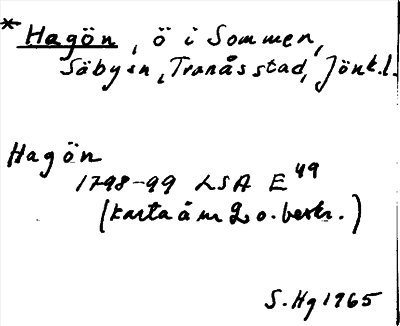 * Hagön, ö i Sommen,
Säby sn, Tranås stad, Jönk.l.
Hagön
1798-99 LSA E 49
(karta å nr 2 o. beskr.)
S.Hg 1965